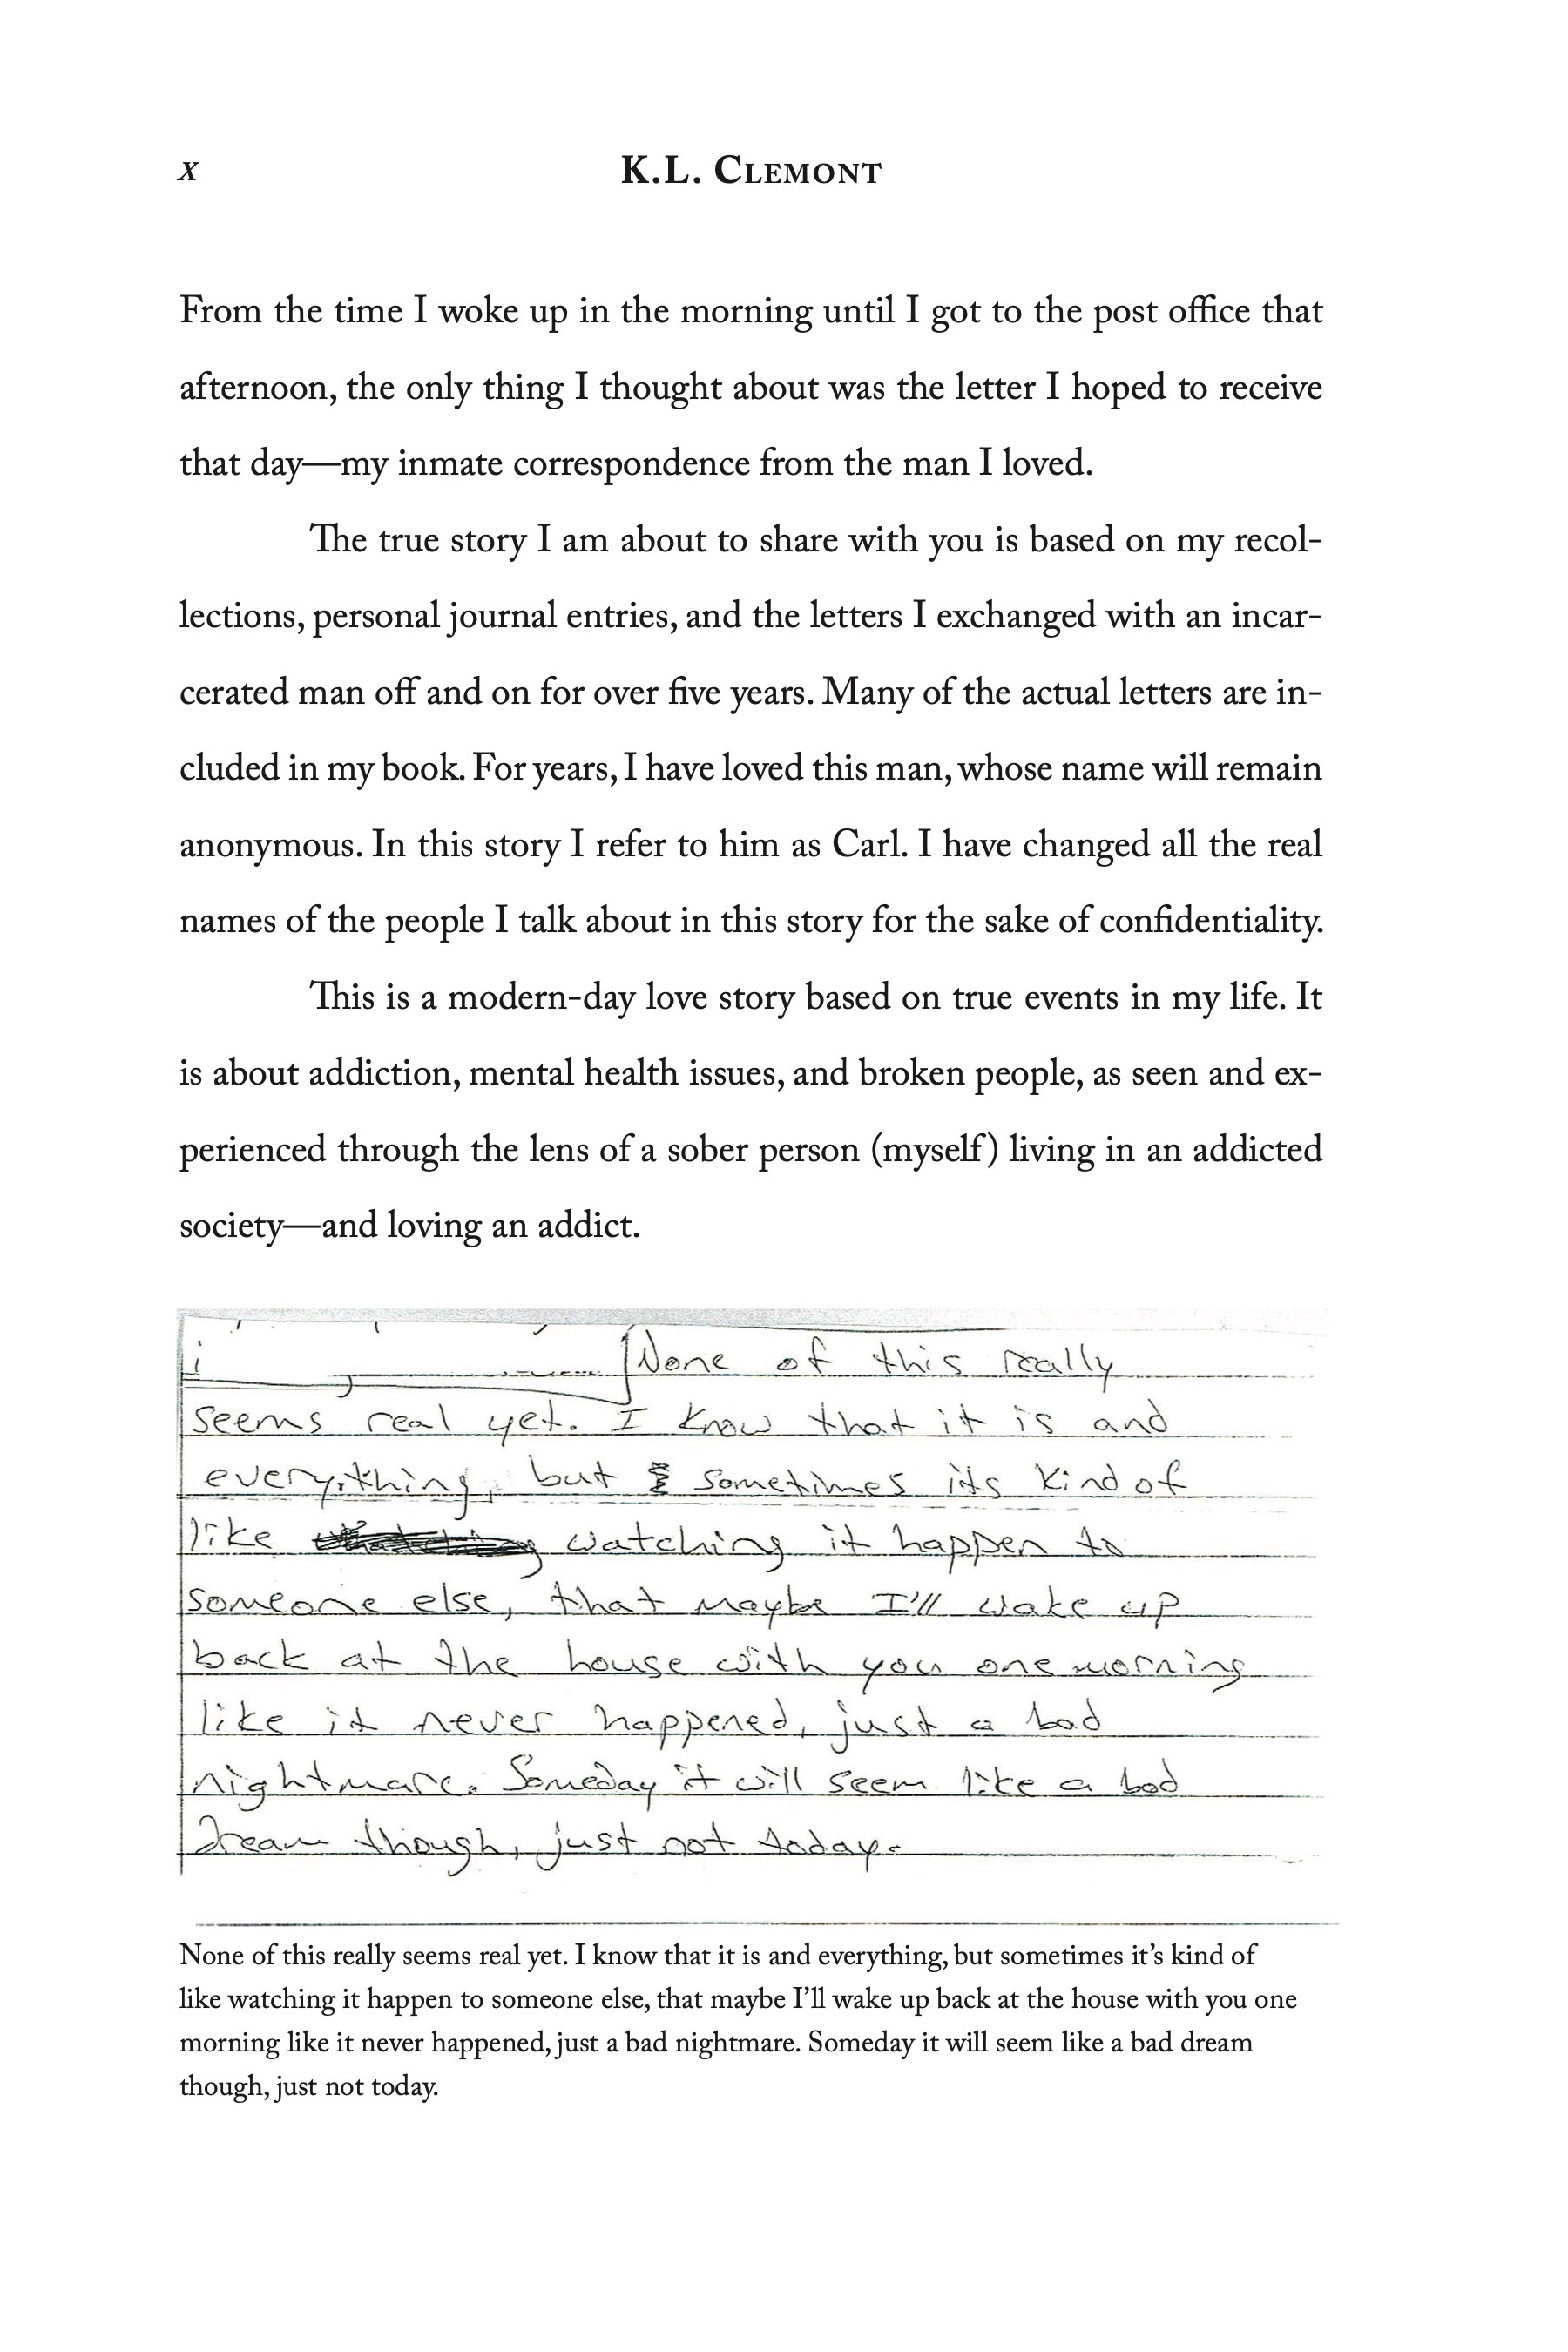 x K.L. Clemont
From the time I woke up in the morning until I got to the post office that
afternoon, the only thing I thought about was the letter I hoped to receive
that day—my inmate correspondence from the man I loved.
The true story I am about to share with you is based on my recol-
lections, personal journal entries, and the letters I exchanged with an incar-
cerated man off and on for over five years. Many of the actual letters are in-
cluded in my book. For years, I have loved this man, whose name will remain
anonymous. In this story I refer to him as Carl. I have changed all the real
names of the people I talk about in this story for the sake of confidentiality.
This is a modern-day love story based on true events in my life. It
is about addiction, mental health issues, and broken people, as seen and ex-
perienced through the lens of a sober person (myself) living in an addicted
society—and loving an addict.
None of this really
seems real yet. I know that it is and
everything, but sometimes its kind of
like watching it happen to
someone else, that maybe I'll wake up
back at the house with you one morning
like it never happened, just a bad
nightmare. Someday it will seem like a bad
dream though, just not today.
None of this really seems real yet. I know that it is and everything, but sometimes it's kind of
like watching it happen to someone else, that maybe I'll wake up back at the house with you one
morning like it never happened, just a bad nightmare. Someday it will seem like a bad dream
though, just not today.